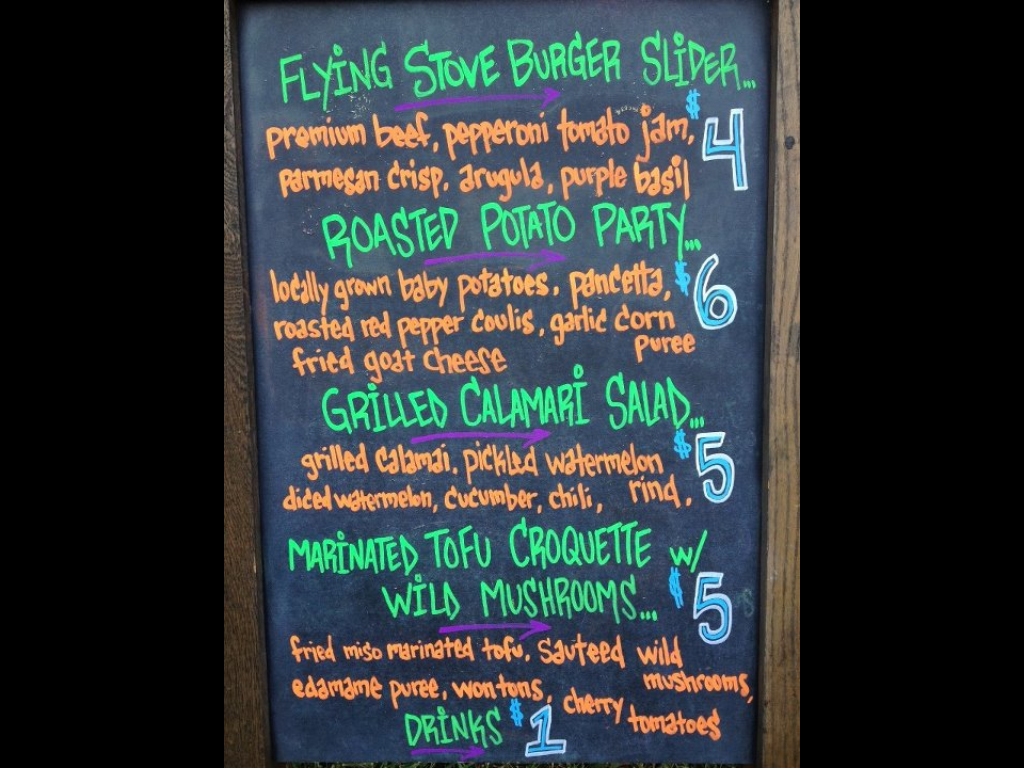 FLYING STOVE BURGER SLIDER...
premium beef, pepperoni tomato jam, $4
parmesan crisp, arugula, purple basil
ROASTED POTATO PARTY...
locally grown baby potatoes, pancetta, $6
roasted red pepper coulis, garlic corn
puree
fried goat cheese
GRILLED CALAMARI SALAD...
grilled calamai, pickled watermelon $5
diced watermelon, cucumber, chili, rind,
MARINATED TOFU CROQUETTE w/
WILD MUSHROOMS... $5
fried miso marinated tofu, sauteed wild
mushrooms,
edamame puree, wontons, cherry tomatoes
DRINKS $1